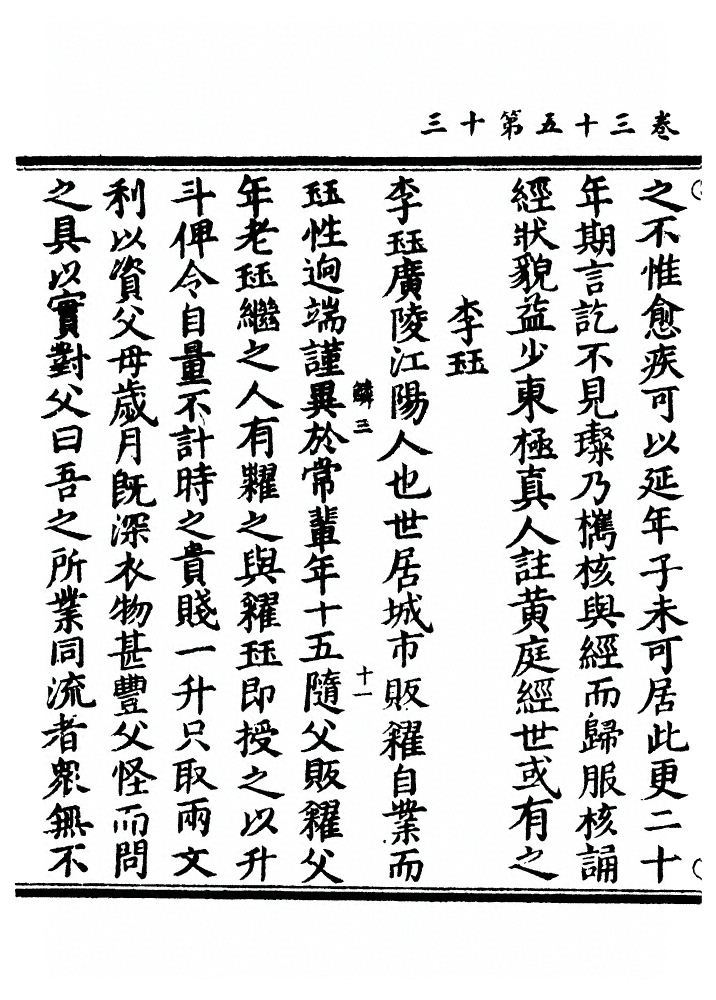 卷三十五第十三
之不惟愈疾可以延年子未可居此更二十
年期言訖不見璨乃㩦核與經而歸服核誦
經狀貌益少東極真人註黄庭經世或有之
李珏
李珏廣陵江陽人也世居城市販糴自業而
鱗三
十一
珏性逈端謹異於常輩年十五隨父販糴父
年老珏繼之人有糴之與糴珏即授之以升
斗俾令自量不計時之貴賤一升只取兩文
利以資父母歲月旣深衣物甚豐父怪而問
之具以實對父曰吾之所業同流者衆無不